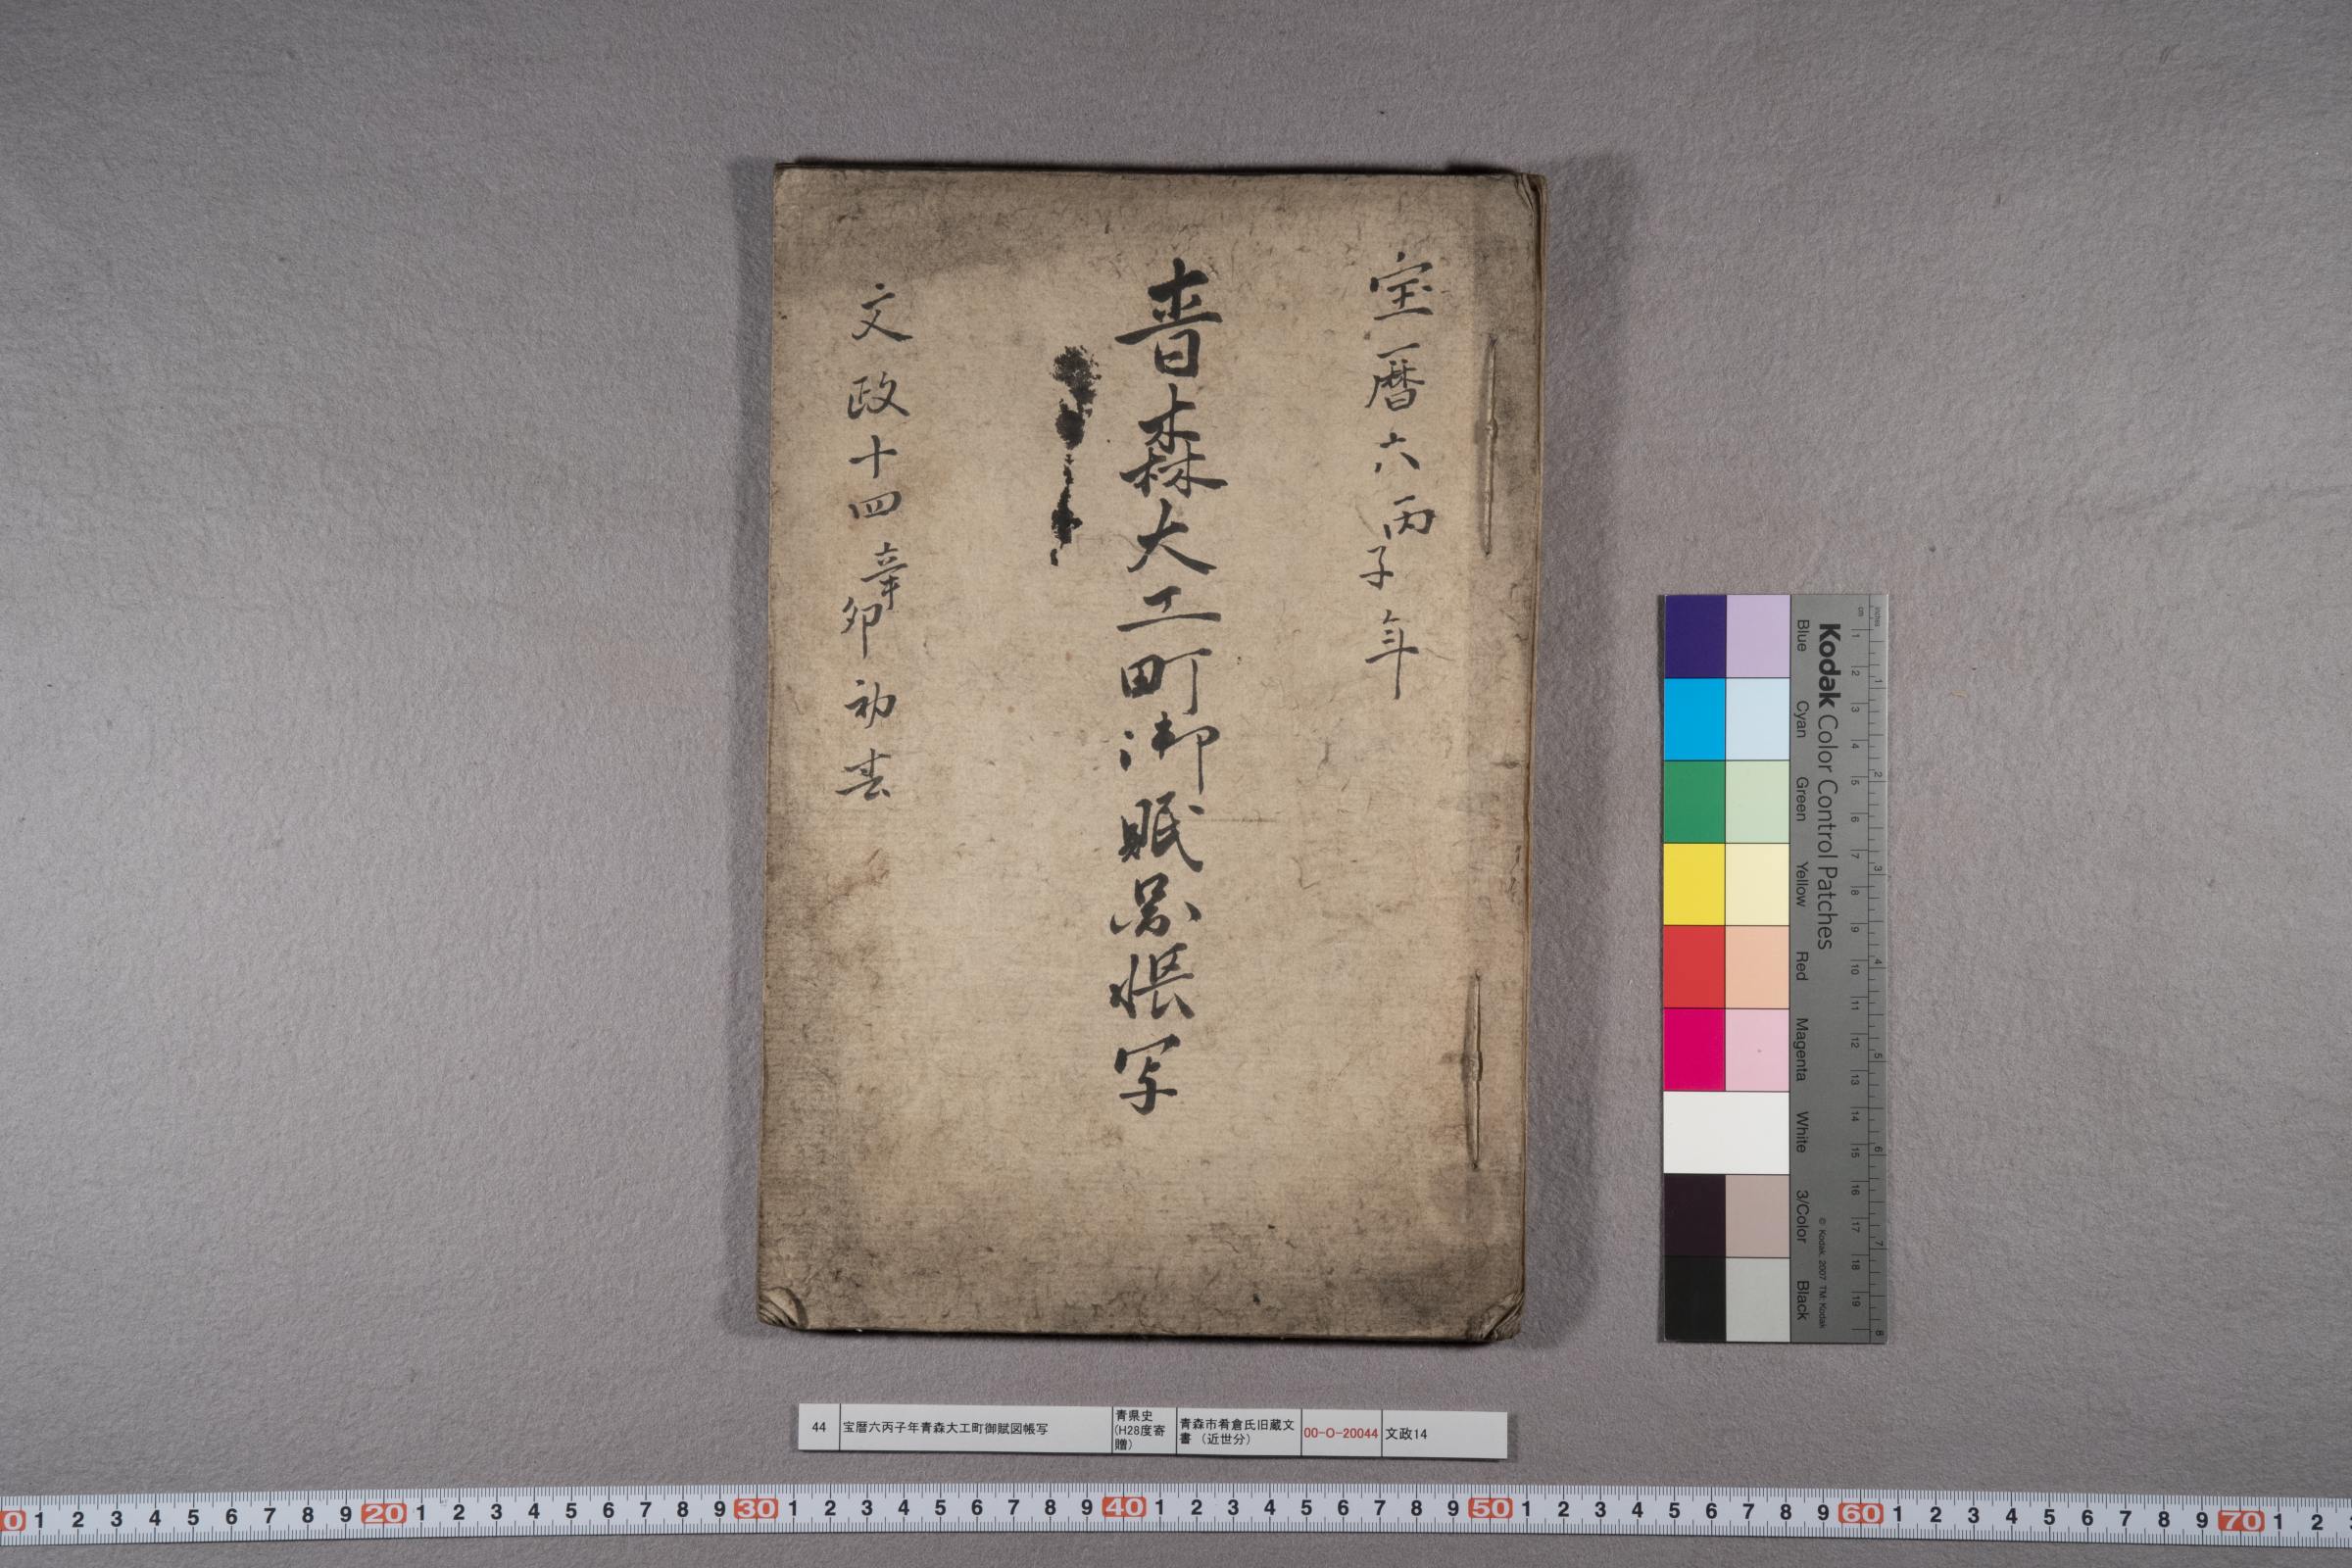 宝暦六丙子年
青森大工町御賦図帳写
文政十四辛卯初春
Kodak Color Control Patches
Blue Cyan Green Yellow Red Magenta White 3/Color Black
© Kodak, 2007 TM: Kodak
cm 1 2 3 4 5 6 7 8 9 10 11 12 13 14 15 16 17 18 19
inches 1 2 3 4 5 6 7 8
44 宝暦六丙子年青森大工町御賦図帳写 青県史(H28度寄贈) 青森市肴倉氏旧蔵文書（近世分） 00-O-20044 文政14
0 1 2 3 4 5 6 7 8 9 20 1 2 3 4 5 6 7 8 9 30 1 2 3 4 5 6 7 8 9 40 1 2 3 4 5 6 7 8 9 50 1 2 3 4 5 6 7 8 9 60 1 2 3 4 5 6 7 8 9 70 1 2